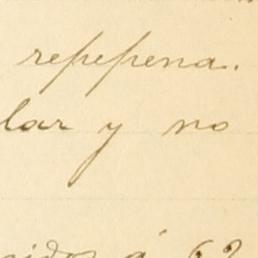 repepena.
lar y no
cidos á 62